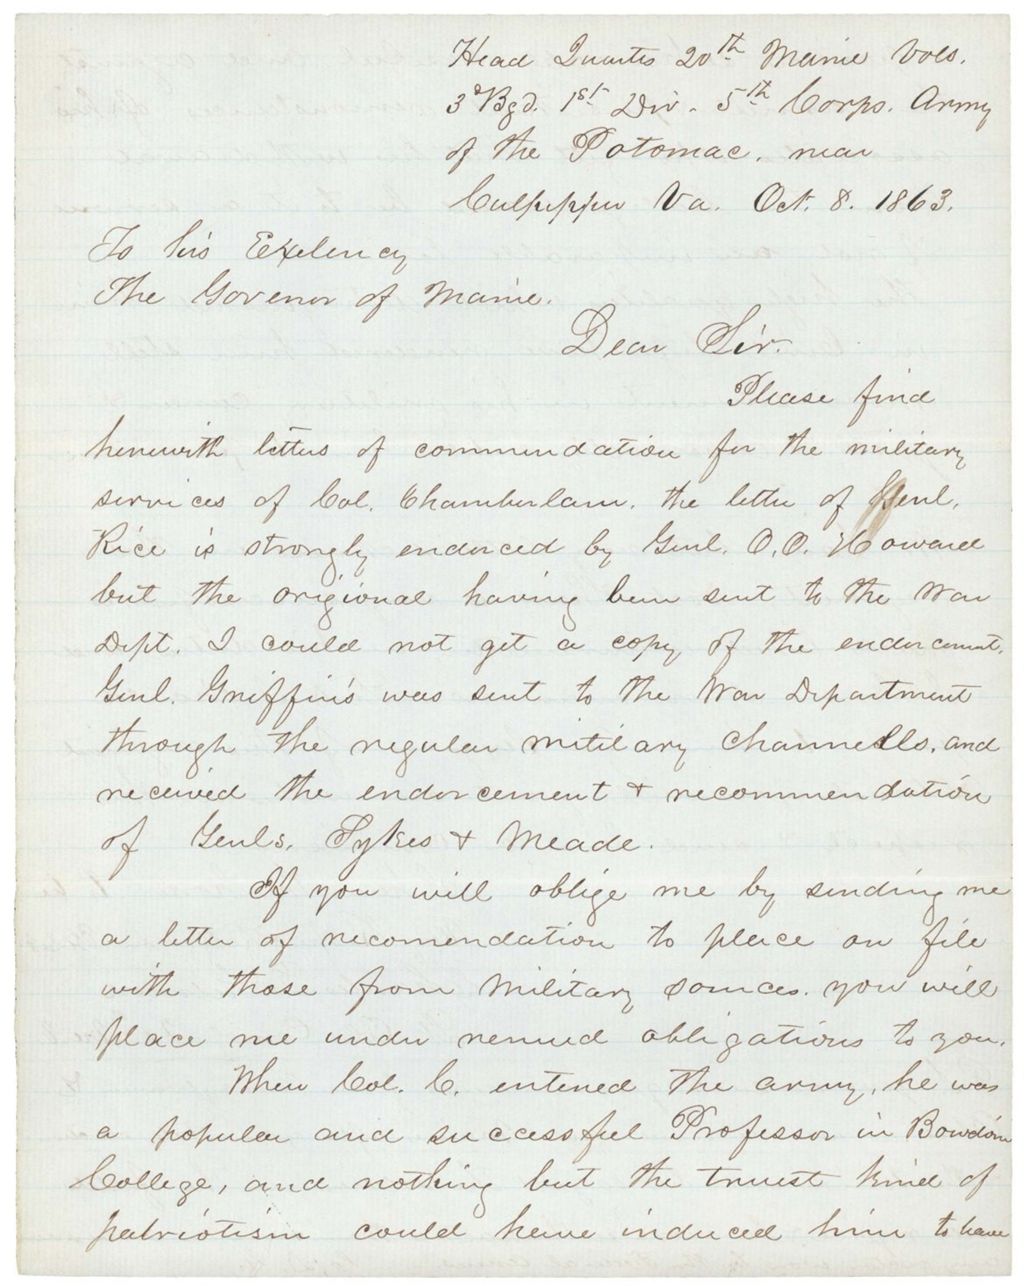 Head Quarters 20th Maine Vols.
3d Bgd. 1st Div. 5th Corps. Army
of the Potomac. near
Culpepper Va. Oct. 8. 1863.
To his Exelency
The Govenor of Maine.
Dear Sir.
Please find
herewith letters of commendation for the military
services of Col. Chamberlain. the letter of Genl.
Rice is strongly endorced by Genl. O.O. Howard
but the origional having been sent to the War
Dept. I could not get a copy of the endorcement.
Genl. Griffin's was sent to the War Department
through the regular military channells. and
received the endorcement & recommendation
of Genls. Sykes & Meade.
If you will oblige me by sending me
a letter of recomendation to place on file
with those from military sources. you will
place me under renued obligations to you.
When Col. C. entered the army, he was
a popular and successful Professor in Bowdoin
College, and nothing but the truest kind of
patriotism could have induced him to have